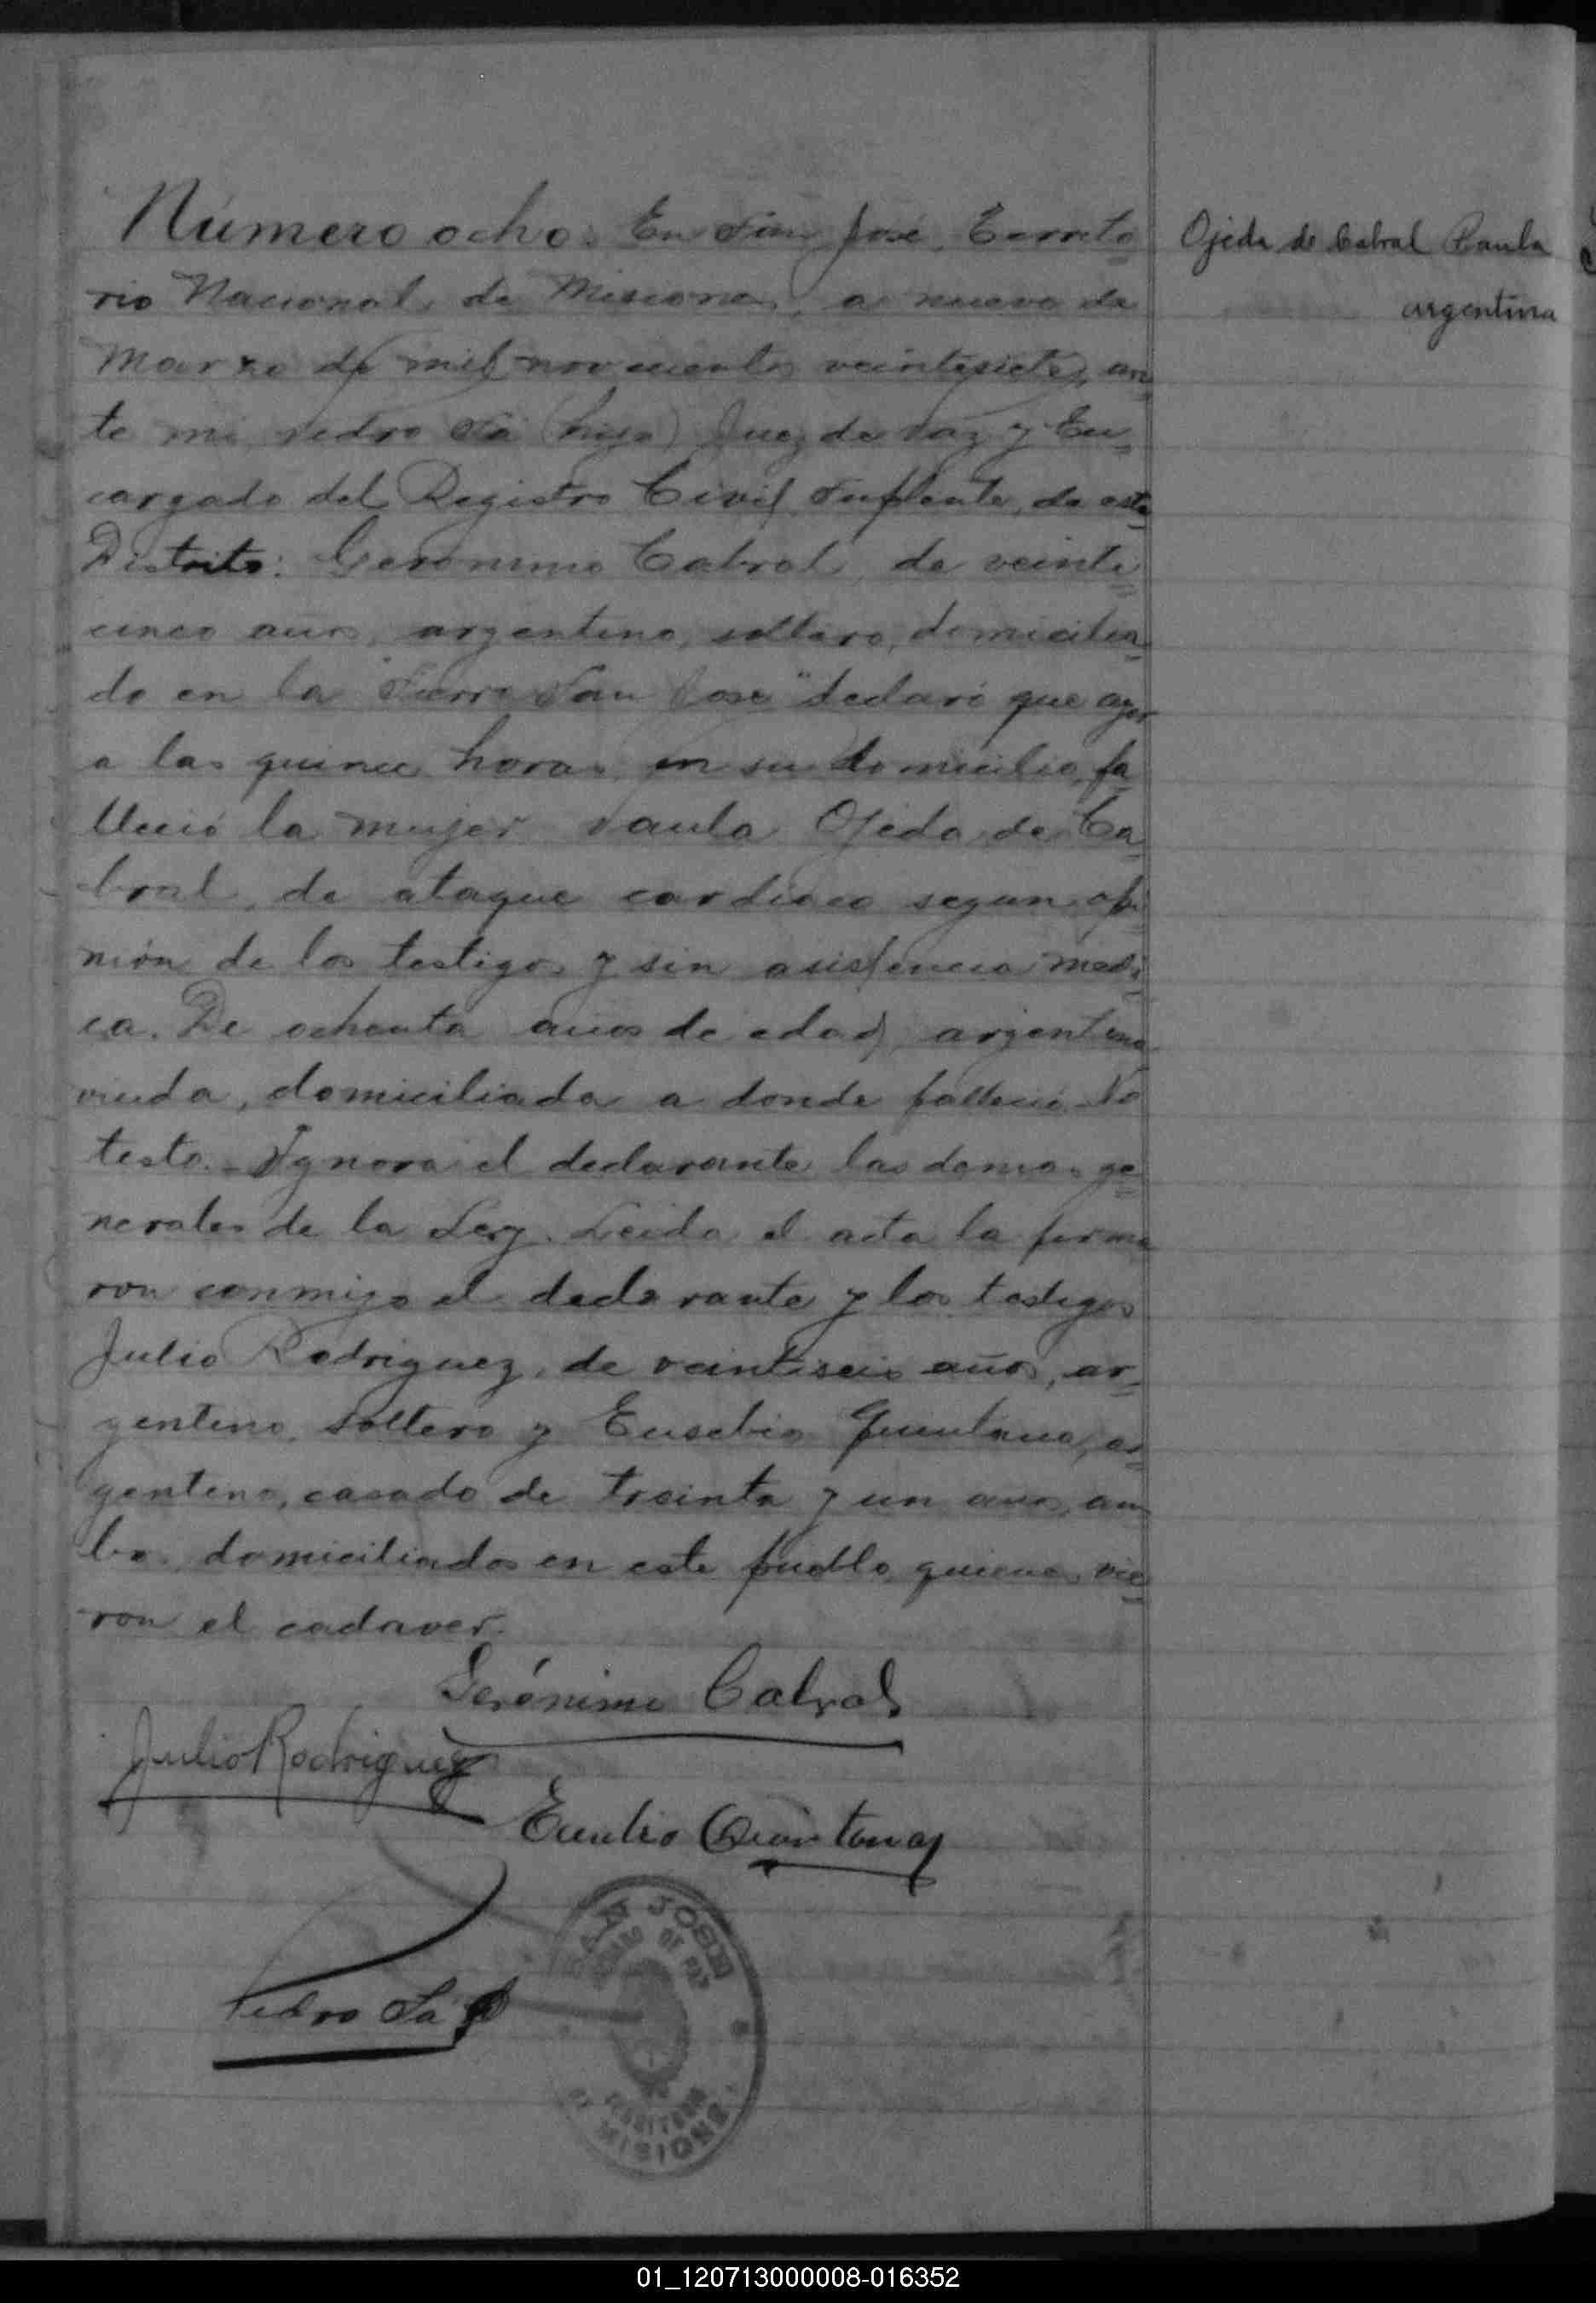 Número ocho. En San José, Territo-
Ojeda de Cabral Paula
argentina
rio Nacional de Misiones, a nueve de
Marzo de mil novecientos veintisiete, an-
te mi Pedro Sá (hijo) Juez de Paz y En-
cargado del Registro Civil Suplente, de este
Distrito: Geronimo Cabral, de veinti-
cinco años, argentino, soltero, domicilia-
do en la "Sierra San José" declaró que ayer
a las quince horas en su domicilio, fa-
lleció la mujer Paula Ojeda de Ca-
bral, de ataque cardiaco segun opi-
nión de los testigos y sin asistencia medi-
ca. De ochenta años de edad, argentina
viuda, domiciliada a donde falleció. No
testo. - Ignora el declarante las demas ge-
nerales de la Ley. Leida el acta la firma-
ron conmigo el declarante y los testigos
Julio Rodriguez, de veintiseis años, ar-
gentino, soltero y Eusebio Quintana, ar-
gentino, casado de treinta y un años, am-
bos domiciliados en este pueblo, quienes vie-
ron el cadaver.
Gerónimo Cabral
Julio Rodriguez
Eusebio Quintana
Pedro Sá
SAN JOSE
JUZGADO DE PAZ
TERRITORIO
DE MISIONES
01_120713000008-016352